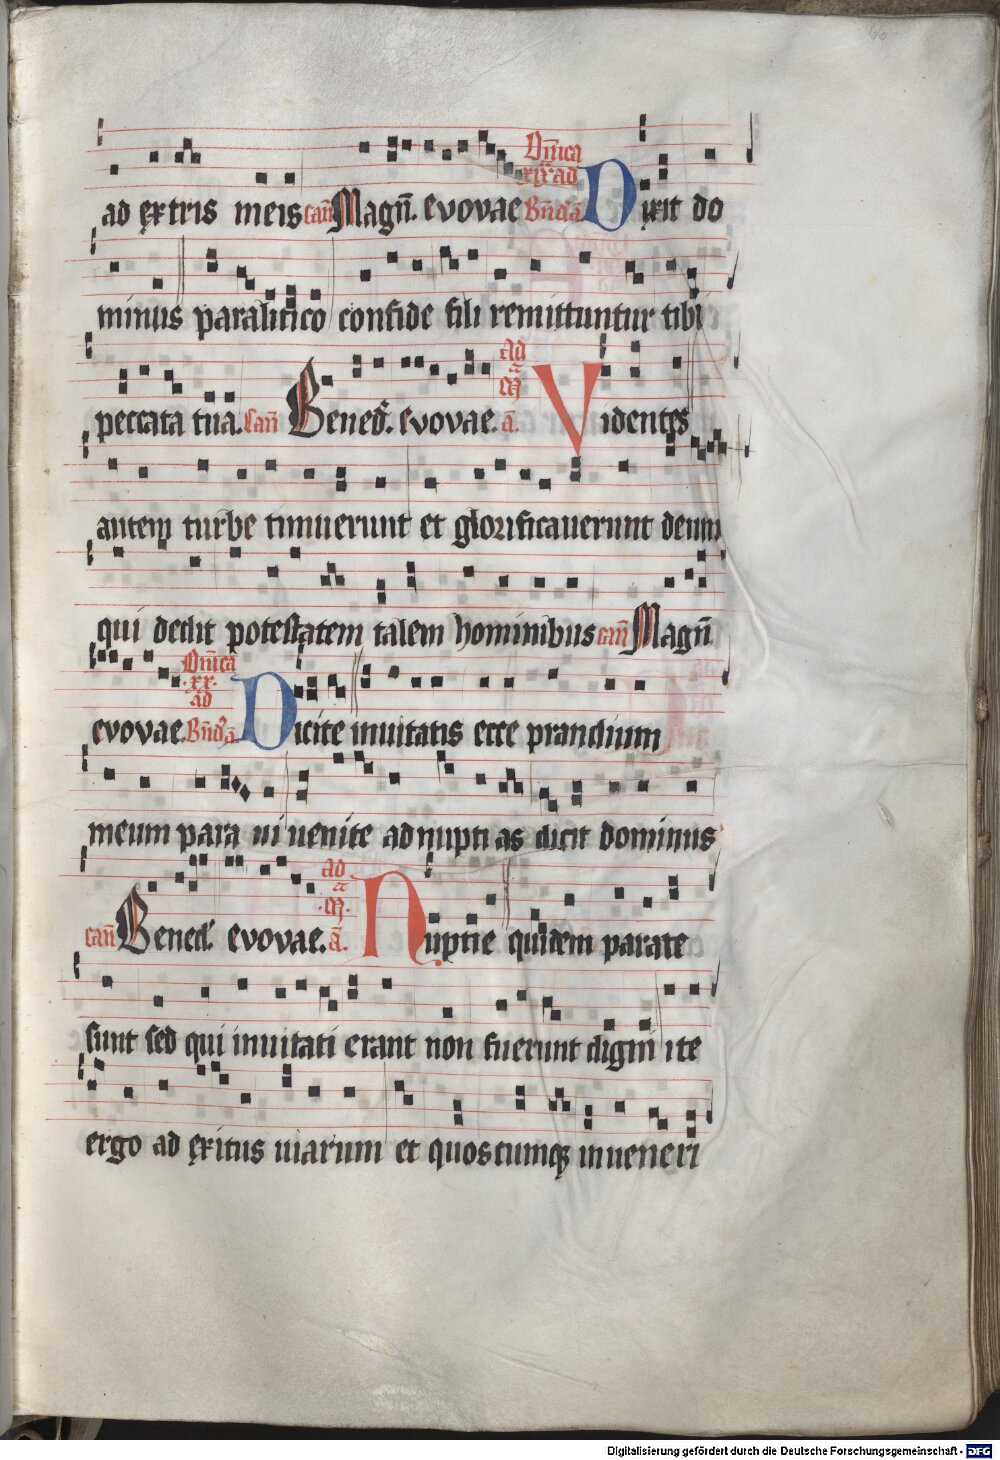 66
ad extris meis can̄ Magn̄. evovae Dn̄ica xix ad Bn̄ds ā Dixit do
minus paralitico confide fili remittuntur tibi
peccata tua. Can̄ Bened̄. evovae. ad m̄ ā. Videntes
autem turbe timuerunt et glorificauerunt deum
qui dedit potestatem talem hominibus can̄ Magn̄
evovae. Dn̄ica .xx. ad Bn̄ds ā. Dicite inuitatis ecce prandium
meum paraui uenite ad nuptias dicit dominus
can̄ Bened̄. evovae. ad m̄. ā. Nuptie quidem parate
sunt sed qui inuitati erant non fuerunt digni ite
ergo ad exitus uiarum et quoscumqꝫ inueneri
Digitalisierung gefördert durch die Deutsche Forschungsgemeinschaft - DFG